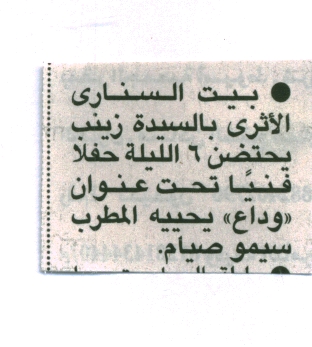 ● بيت السنارى
الأثرى بالسيدة زينب
يحتضن ٦ الليلة حفلا
فنيًا تحت عنوان
«وداع» يحييه المطرب
سيمو صيام.